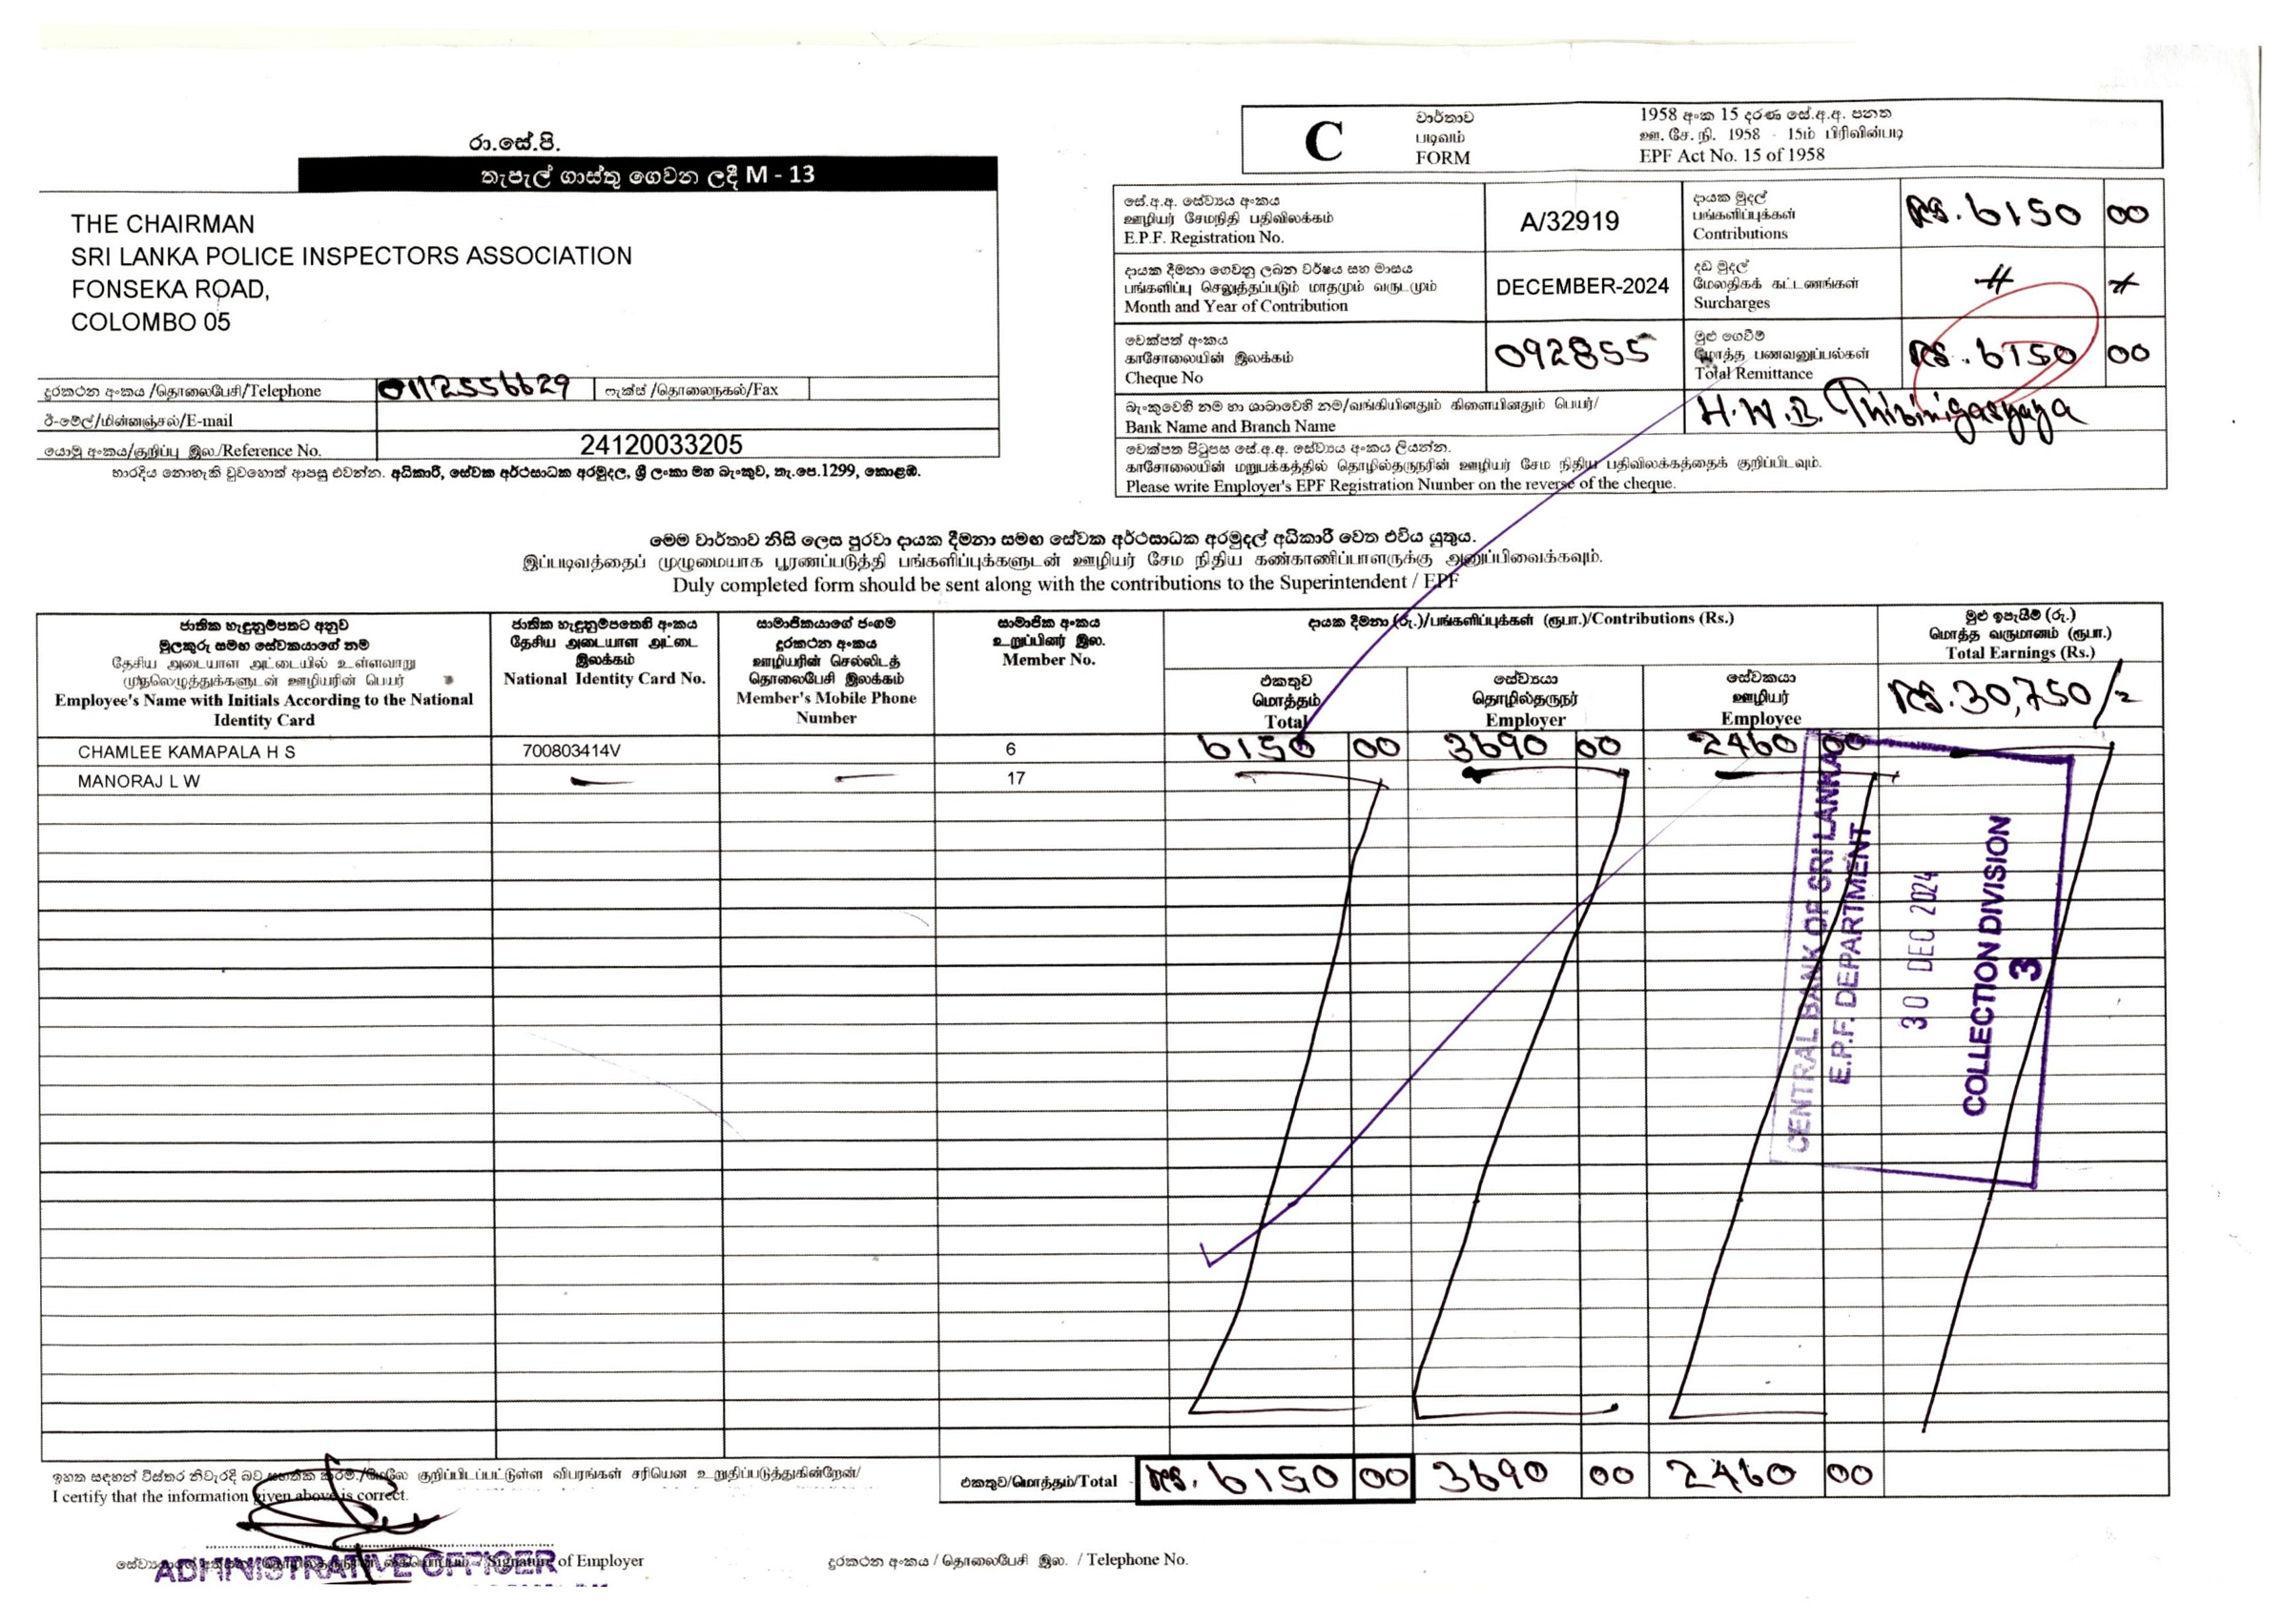 රා.සේ.පි.
තැපැල් ගාස්තු ගෙවන ලදී M - 13
THE CHAIRMAN
SRI LANKA POLICE INSPECTORS ASSOCIATION
FONSEKA ROAD,
COLOMBO 05
දුරකථන අංකය /தொலைபேசி/Telephone 0112556629 ෆැක්ස් /தொலைநகல்/Fax
ඊ-මේල්/மின்னஞ்சல்/E-mail
යොමු අංකය/குறிப்பு இல./Reference No. 24120033205
භාරදිය නොහැකි වුවහොත් ආපසු එවන්න. අධිකාරී, සේවක අර්ථසාධක අරමුදල, ශ්‍රී ලංකා මහ බැංකුව, තැ.පෙ.1299, කොළඹ.
C
වාර්තාව
படிவம்
FORM
1958 අංක 15 දරණ සේ.අ.අ. පනත
ஊ. சே. நி. 1958 - 15ம் பிரிவின்படி
EPF Act No. 15 of 1958
සේ.අ.අ. සේව්‍යය අංකය
ஊழியர் சேமநிதி பதிவிலக்கம்
E.P.F. Registration No.
A/32919
දායක මුදල්
பங்களிப்புக்கள்
Contributions
Rs. 6150 00
දායක දීමනා ගෙවනු ලබන වර්ෂය සහ මාසය
பங்களிப்பு செலுத்தப்படும் மாதமும் வருடமும்
Month and Year of Contribution
DECEMBER-2024
දඩ මුදල්
மேலதிகக் கட்டணங்கள்
Surcharges
චෙක්පත් අංකය
காசோலையின் இலக்கம்
Cheque No
092855
මුළු ගෙවීම්
மொத்த பணவனுப்பல்கள்
Total Remittance
Rs. 6150 00
බැංකුවෙහි නම හා ශාඛාවෙහි නම/வங்கியினதும் கிளையினதும் பெயர்/
Bank Name and Branch Name
චෙක්පත පිටුපස සේ.අ.අ. සේව්‍යය අංකය ලියන්න.
காசோலையின் மறுபக்கத்தில் தொழில்தருநரின் ஊழியர் சேம நிதிய பதிவிலக்கத்தைக் குறிப்பிடவும்.
Please write Employer's EPF Registration Number on the reverse of the cheque.
මෙම වාර්තාව නිසි ලෙස පුරවා දායක දීමනා සමඟ සේවක අර්ථසාධක අරමුදල් අධිකාරී වෙත එවිය යුතුය.
இப்படிவத்தைப் முழுமையாக பூரணப்படுத்தி பங்களிப்புக்களுடன் ஊழியர் சேம நிதிய கண்காணிப்பாளருக்கு அனுப்பிவைக்கவும்.
Duly completed form should be sent along with the contributions to the Superintendent / EPF
ජාතික හැඳුනුම්පතට අනුව
මුලකුරු සමඟ සේවකයාගේ නම
தேசிய அடையாள அட்டையில் உள்ளவாறு
முதலெழுத்துக்களுடன் ஊழியரின் பெயர்
Employee's Name with Initials According to the National
Identity Card
ජාතික හැඳුනුම්පතෙහි අංකය
தேசிய அடையாள அட்டை
இலக்கம்
National Identity Card No.
සාමාජිකයාගේ ජංගම
දුරකථන අංකය
ஊழியரின் செல்லிடத்
தொலைபேசி இலக்கம்
Member's Mobile Phone
Number
සාමාජික අංකය
உறுப்பினர் இல.
Member No.
දායක දීමනා (රු.)/பங்களிப்புக்கள் (ரூபா.)/Contributions (Rs.)
එකතුව
மொத்தம்
Total
සේව්‍යයා
தொழில்தருநர்
Employer
සේවකයා
ஊழியர்
Employee
මුළු ඉපැයීම් (රු.)
மொத்த வருமானம் (ரூபா.)
Total Earnings (Rs.)
Rs. 30,750/=
CHAMLEE KAMAPALA H S 700803414V 6 6150 00 3690 00 2460 00
MANORAJ L W 17
CENTRAL BANK OF SRI LANKA
E.P.F. DEPARTMENT
30 DEC 2024
COLLECTION DIVISION
3
ඉහත සඳහන් විස්තර නිවැරදි බව සහතික කරමි./மேலே குறிப்பிடப்பட்டுள்ள விபரங்கள் சரியென உறுதிப்படுத்துகின்றேன்/
I certify that the information given above is correct.
එකතුව/மொத்தம்/Total Rs. 6150 00 3690 00 2460 00
Signature of Employer
ADMINISTRATIVE OFFICER
දුරකථන අංකය / தொலைபேசி இல. / Telephone No.